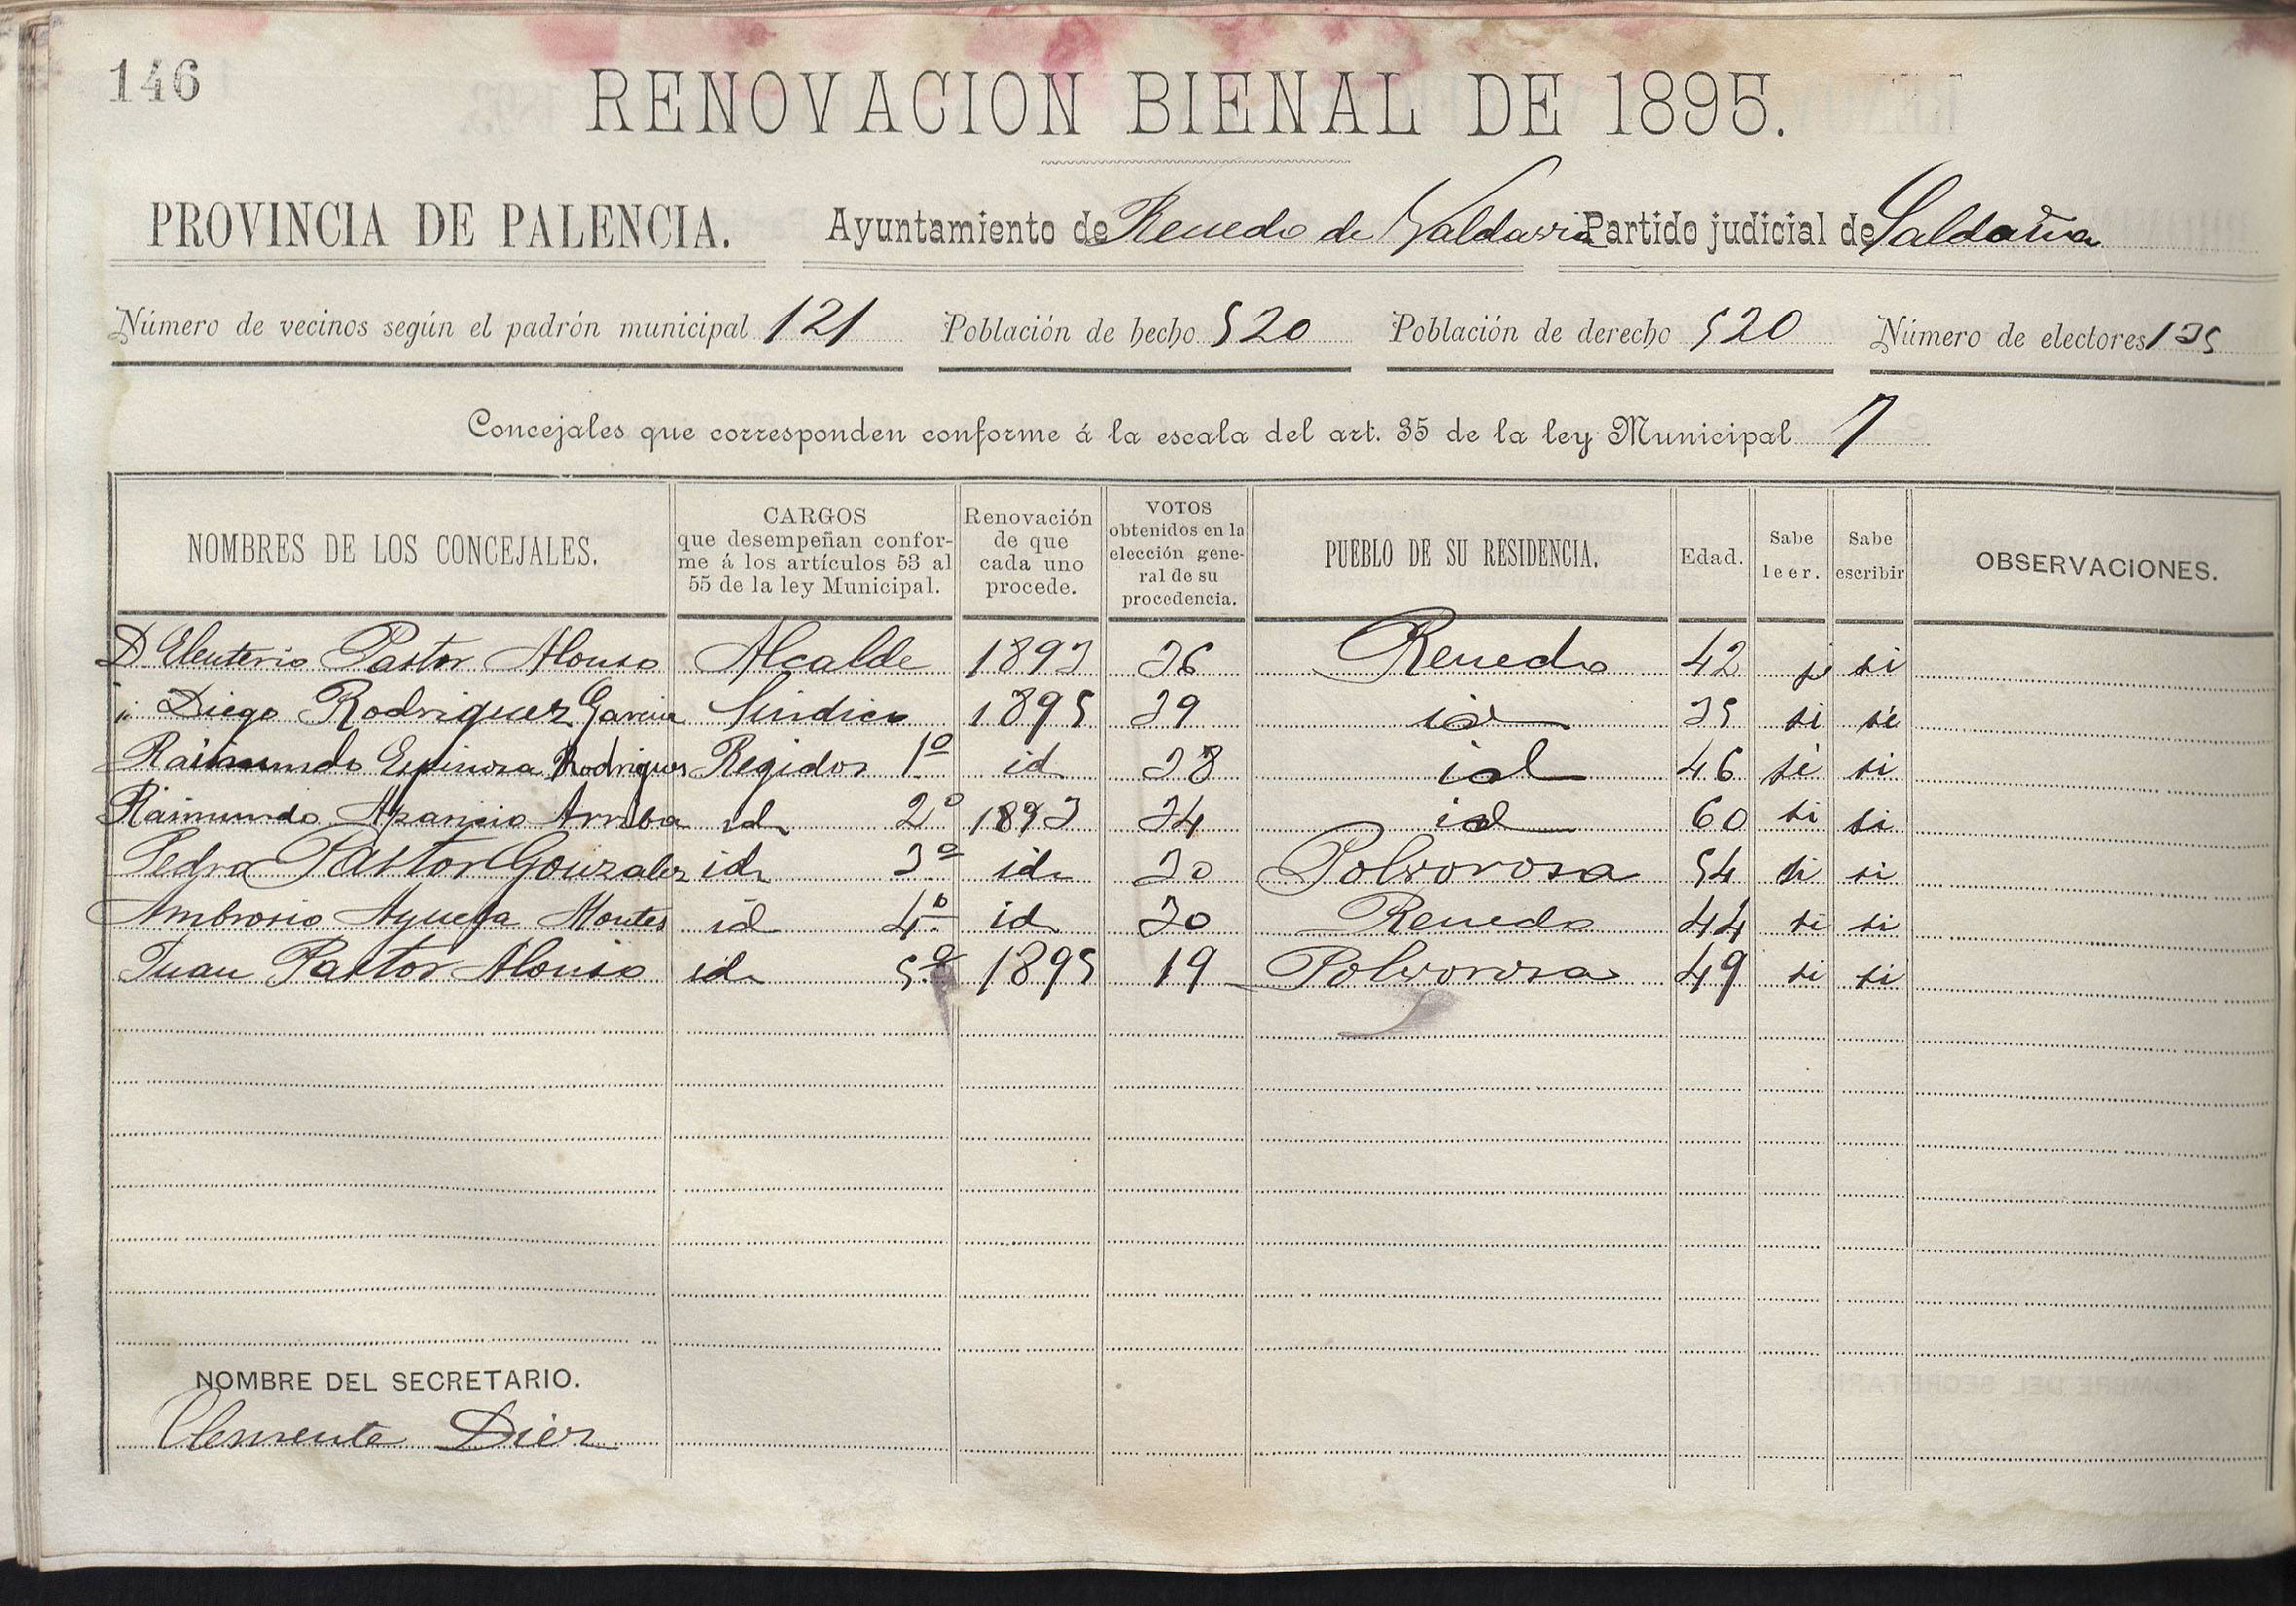 146
RENOVACION BIENAL DE 1895.
PROVINCIA DE PALENCIA. Ayuntamiento de Renedo de Valdavia Partido judicial de Saldaña
Número de vecinos según el padrón municipal 121 Población de hecho 520 Población de derecho 520 Número de electores 135
Concejales que corresponden conforme á la escala del art. 35 de la ley Municipal 7
NOMBRES DE LOS CONCEJALES.
CARGOS
que desempeñan confor-
me á los artículos 53 al
55 de la ley Municipal.
Renovación
de que
cada uno
procede.
VOTOS
obtenidos en la
elección gene-
ral de su
procedencia.
PUEBLO DE SU RESIDENCIA.
Edad.
Sabe
leer.
Sabe
escribir
OBSERVACIONES.
D. Eleuterio Pastor Alonso Alcalde 1893 36 Renedo 42 si si
" Diego Rodriguez Garcia Sindico 1895 39 id 35 si si
Raimundo Espinosa Rodriguez Regidor 1º id 38 id 46 si si
Raimundo Aparicio Arriba id 2º 1893 34 id 60 si si
Pedro Pastor Gonzalez id 3º id 30 Polvorosa 54 si si
Ambrosio Ayuela Montes id 4º id 30 Renedo 44 si si
Juan Pastor Alonso id 5º 1895 19 Polvorosa 49 si si
NOMBRE DEL SECRETARIO.
Clemente Diez